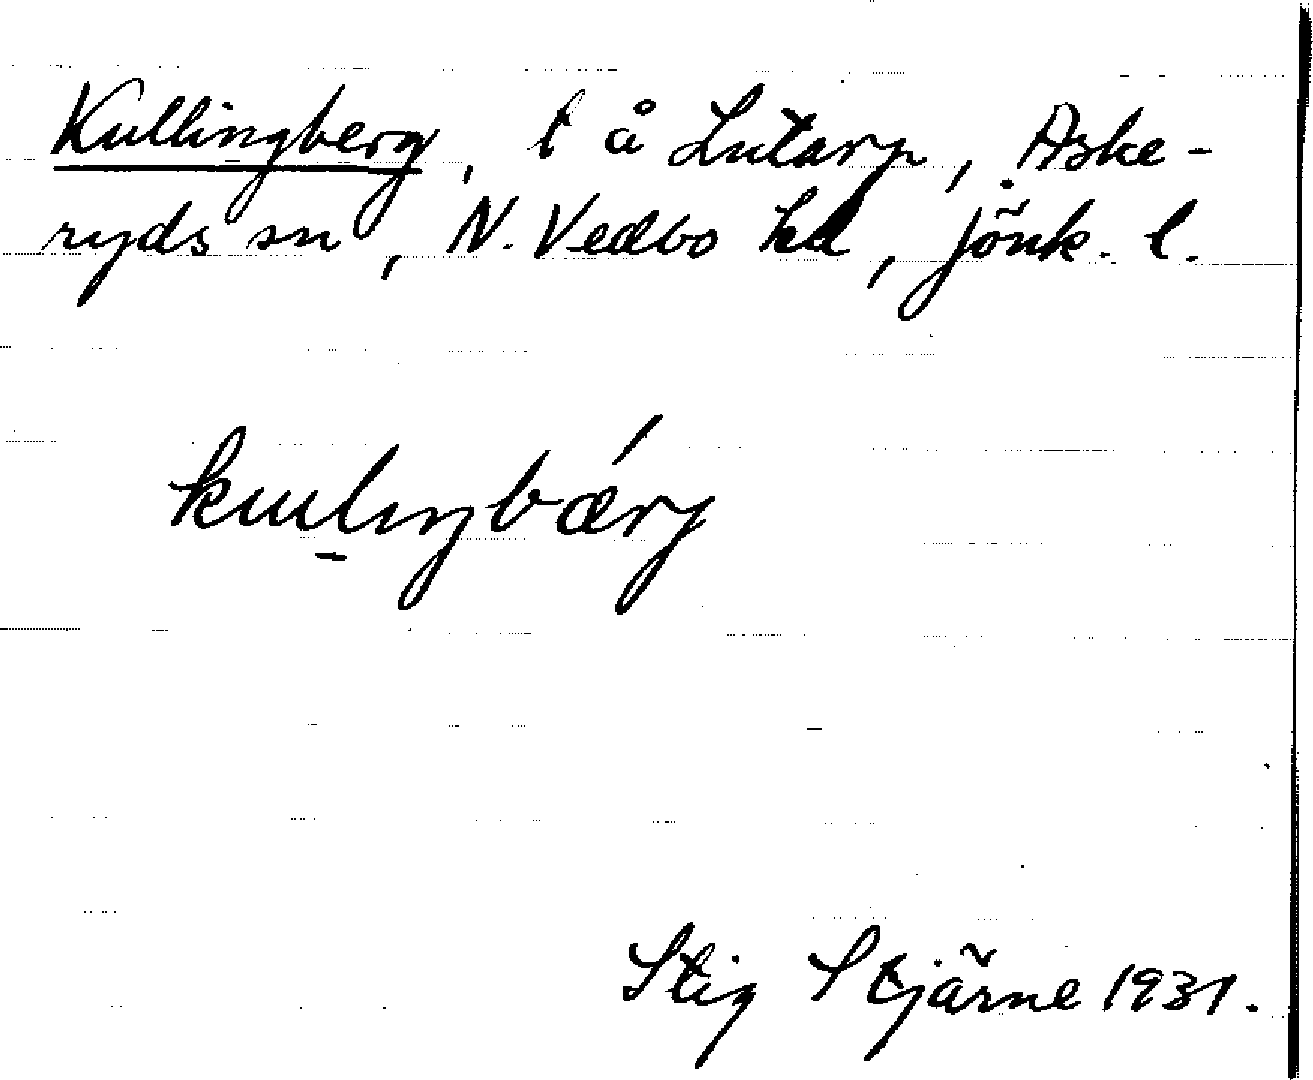 Kullingberg, t å Lutarp, Aske-
ryds sn, N. Vedbo hd, Jönk. l.
kuulıŋbǽrj
Stig Stjärne 1931.